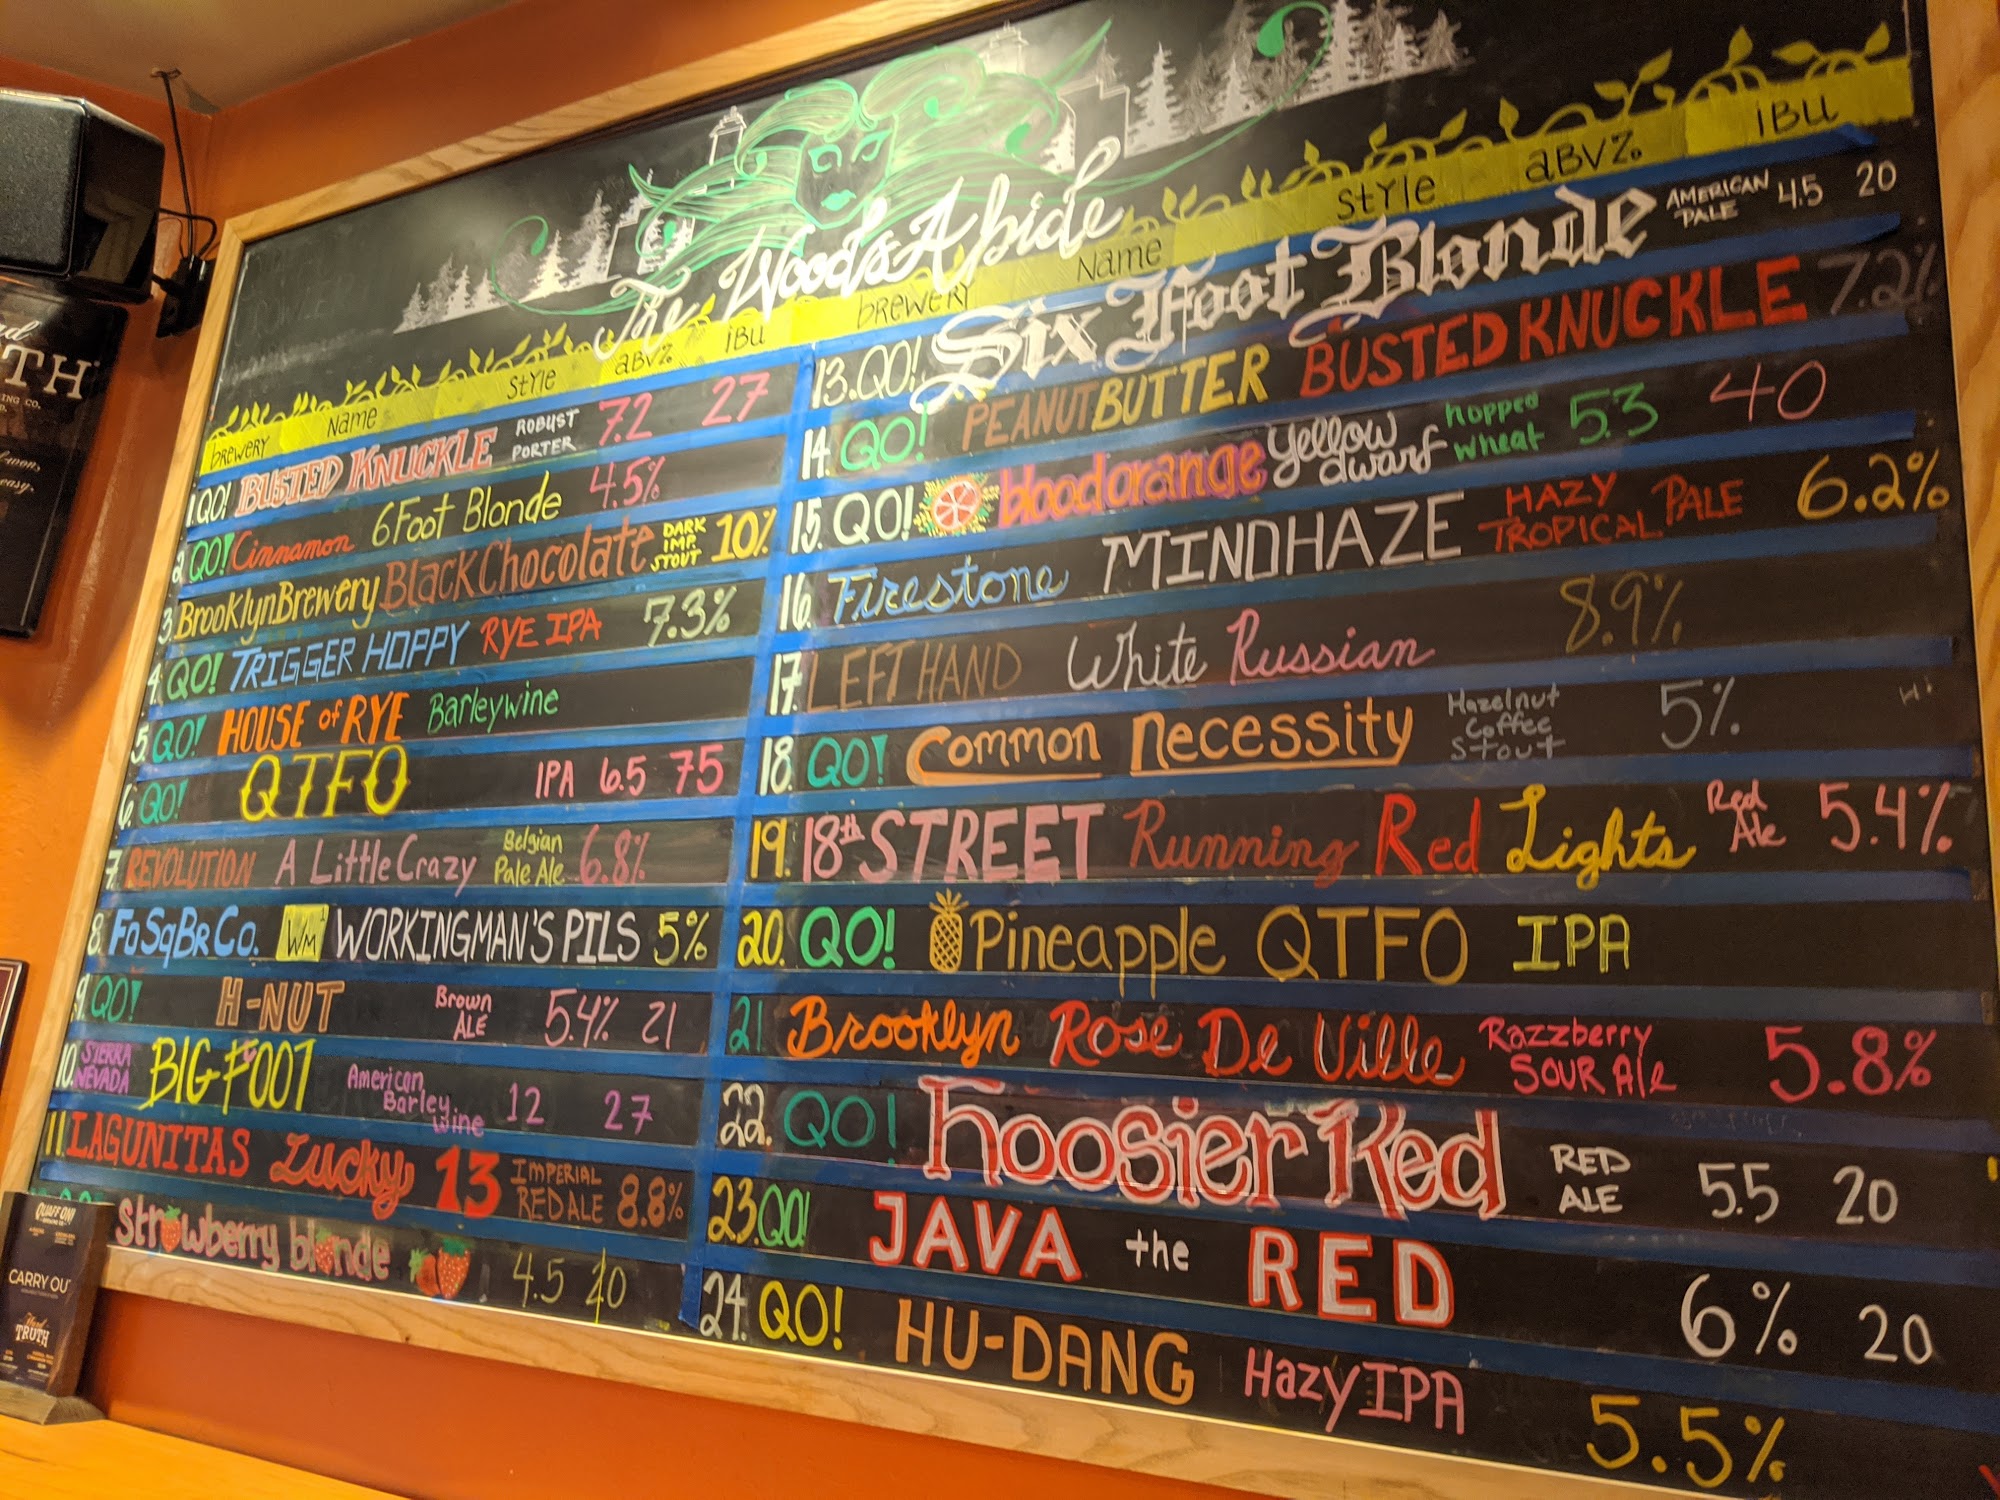 The Woods Abide
brewery Name Style ABV% iBU
1. QO! BUSTED KNUCKLE ROBUST PORTER 7.2 27
2 QO! Cinnamon 6 Foot Blonde 4.5%
3. Brooklyn Brewery Black Chocolate DARK IMP. STOUT 10%
4. QO! TRIGGER HOPPY RYE IPA 7.3%
5. QO! HOUSE of RYE Barleywine
6. QO! QTFO IPA 6.5 75
7. REVOLUTION A Little Crazy Belgian Pale Ale 6.8%
8. FoSqBrCo. WM WORKINGMAN'S PILS 5%
9. QO! H-NUT Brown ALE 5.4% 21
10. SIERRA NEVADA BIGFOOT American Barley wine 12 27
11. LAGUNITAS Lucky 13 IMPERIAL RED ALE 8.8%
strawberry blonde 4.5 20
brewery Name Style ABV% iBU
13. QO! Six Foot Blonde AMERICAN PALE 4.5 20
14. QO! PEANUT BUTTER BUSTED KNUCKLE 7.2%
15. QO! blood orange yellow dwarf hopped wheat 5.3 40
16. Firestone MINDHAZE HAZY TROPICAL PALE 6.2%
17. LEFT HAND White Russian 8.9%
18. QO! Common Necessity Hazelnut Coffee Stout 5%
19. 18th STREET Running Red Lights Red Ale 5.4%
20. QO! Pineapple QTFO IPA
21 Brooklyn Rose De Ville Razzberry SOUR Ale 5.8%
22. QO! Hoosier Red RED ALE 5.5 20
23. QO! JAVA the RED 6% 20
24. QO! HU-DANG Hazy IPA 5.5%
TH
ING CO.
QUAFF ON!
CARRY OU
Hard
TRUTH